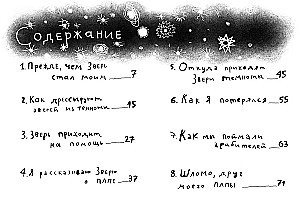 Содержание
1. Прежде, чем Зверь
стал моим 7
2. Как дрессируют
зверей из темноты 15
3. Зверь приходит
на помощь 27
4. Я рассказываю Зверю
о папе 37
5. Откуда приходят
Звери темноты 45
6. Как я потерялся 55
7. Как мы поймали
грабителей 63
8. Шломо, друг
моего папы 71